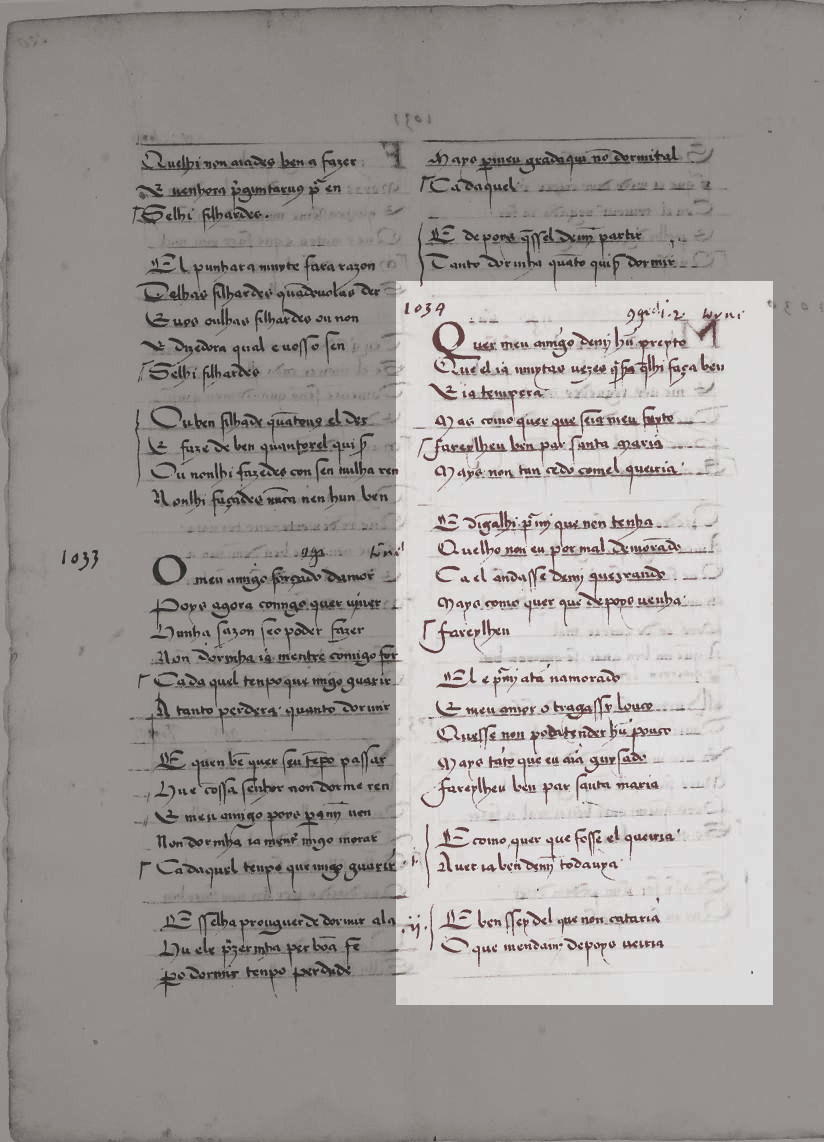 Quelhi non aiades ben a fazer
E uenhora p̃guntaruꝯ p̃ en
Selhi filhardes.
El punhara muyte fara razon
Delhas filhardes quãdouolas der
E uos oulhas filhardes ou non
E dizedora qual e uosso sen
Selhi filhardes
Ou ben filhade quãtouos el der
E faze de ben quantorel quiſ̃
Ou nonlhi fazedes con sen nulha ren
Nonlhi façades nũca nen hun ben
1033
O meu amigo forçado damor
Poys agora comigo quer uiuer
Hunha sazon seo poder fazer
Non dormha ia mentre comigo for
Ca daquel tenpo que migo guarir
A tanto perdera quanto dormir
E quen bẽ quer seu tẽpo passar
Hu e cossa senhor non dorme ren
E meu amigo poys p̃amj uen
Non dormha ia mentr̃ migo morar
Ca daquel tenpo que migo guarir
E sselha prouguer de dormir ala
Hu ele p̃zermha per boã fe
Po dormir tenpo perdude
Mays p̃ meu grada qui nõ dormital
Ca daquel
E de poys q̃ssel demj̃ partir
Tanto dormha quãto quiſ̃ dormir
1034
Quer meu amigo demj hũ preyto
Que el ia muytas uezes q̃s q̃lhi faça ben
E ia tempera
Mas como quer que seia meu feyto
Fareylheu ben par santa maria
Mays non tan cedo comel queiria
E digalhi p̃ mj que non tenha
Quelho non eu por mal demorado
Ca el andasse demj queyxando
Mays como quer que depoys uenha
Fareylheu
El e p̃mj ata namorado
E meu amor o tragassy louco
Quesse non podatender hũ pouco
Mays tãto que eu aia guysado
Fareylheu ben par santa maria
.i.
E como quer que fosse el queiria
Auer ia ben demj̃ todauya
.ij.
E ben ssey del que non cataria
O que mendamj depoys ueiria